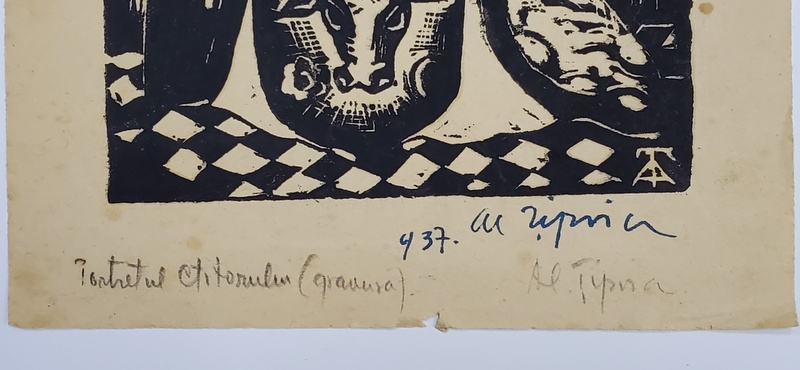 TA
437. Al Țipoia
Portretul Ctitorului (gravura) Al. Țipoia